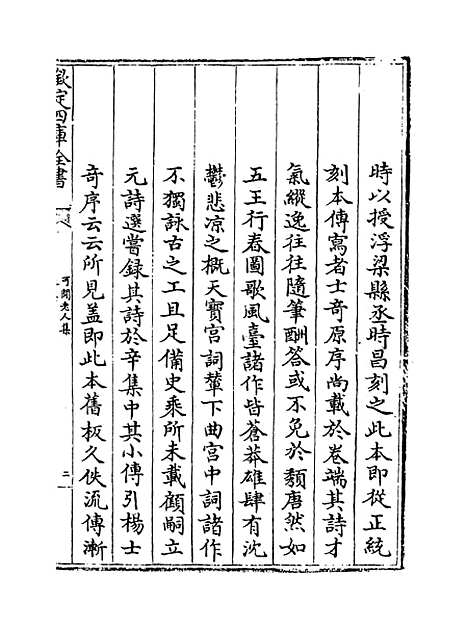 時以授浮梁縣丞時昌刻之此本即從正統
刻本傳寫者士奇原序尚載於卷端其詩才
氣縱逸往往隨筆酬答或不免於頽唐然如
五王行春圖歌風臺諸作皆蒼莽雄肆有沈
鬱悲凉之概天寳宫詞輦下曲宫中詞諸作
不獨詠古之工且足備史乘所未載顧嗣立
元詩選嘗録其詩於辛集中其小傳引楊士
竒序云云所見盖即此本舊板久佚流傳漸
欽定四庫全書
可閒老人集